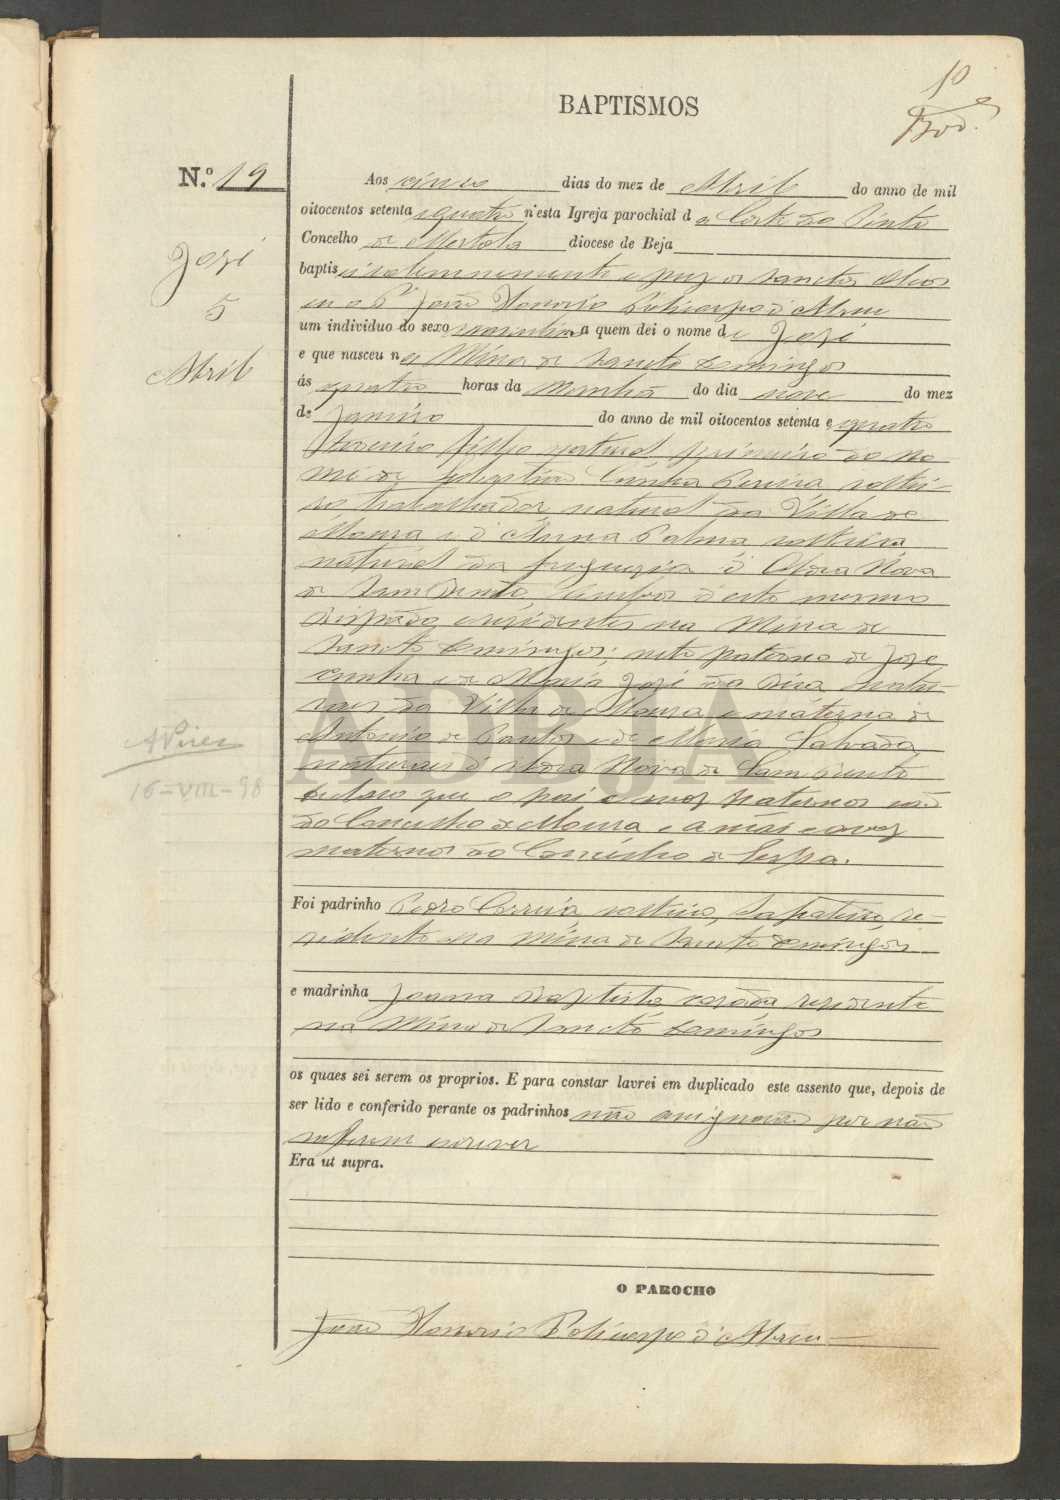 10
BAPTISMOS
N.º 19
José
5
Abril
Aos cinco dias do mez de Abril do anno de mil
oitocentos setenta e quatro n'esta Igreja parochial da Corte do Pinto
Concelho de Mertola diocese de Beja
baptisei solemnemente e puz os sanctos oleos
eu o Pe João Honorio Policarpo d'Abreu
um individuo do sexo masculino a quem dei o nome de José
e que nasceu na Mina de Sancto Domingos
ás quatro horas da Manhã do dia nove do mez
de Janeiro do anno de mil oitocentos setenta e quatro
filho natural primeiro do no-
me de Sebastião Cunha Pereira soltei-
ro trabalhador natural da Villa de
Moura e d'Anna Palma solteira
natural da freguezia d'Aldea Nova
de Sam Bento, ambos d'este mesmo
Bispado e residentes na Mina de
Sancto Domingos; neto paterno de Jose
Cunha e de Maria José da Silva natu-
raes da Villa de Moura e materno de
Antonio de Santos e de Maria Salvada
naturaes d'Aldea Nova de Sam Bento
declaro que o pai e avoz paternos são
do Concelho de Moura e a mai e avoz
maternos do Concelho de Serpa.
Foi padrinho Pedro Correia, solteiro, Sapateiro, re-
sidente na Mina de Sancto Domingos
e madrinha Joana Baptista casada residente
na Mina de Sancto Domingos
os quaes sei serem os proprios. E para constar lavrei em duplicado este assento que, depois de
ser lido e conferido perante os padrinhos não assignarão por não
saberem escrever
Era ut supra.
O PAROCHO
João Honorio Policarpo d'Abreu
A Pires
16-VIII-98
ADBJA